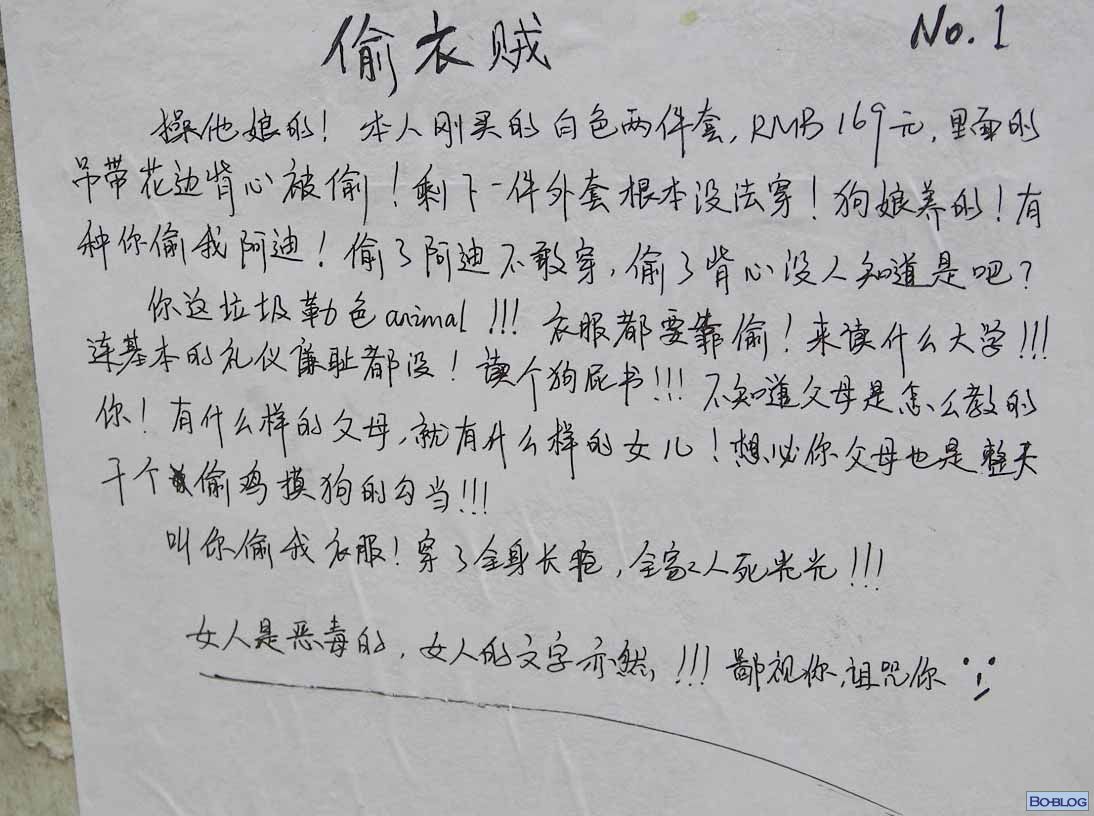 偷衣贼
No.1
操他娘的！本人刚买的白色两件套，RMB 169元，里面的
吊带花边背心被偷！剩下一件外套根本没法穿！狗娘养的！有
种你偷我阿迪！偷了阿迪不敢穿，偷了背心没人知道是吧？
你这垃圾勒色animal!!! 衣服都要靠偷！来读什么大学!!!
连基本的礼仪廉耻都没！读个狗屁书!!! 不知道父母是怎么教的
你！有什么样的父母，就有什么样的女儿！想必你父母也是整天
干个偷鸡摸狗的勾当!!!
叫你偷我衣服！穿了全身长疮，全家人死光光!!!
女人是恶毒的，女人的文字亦然!!! 鄙视你，诅咒你
BO-BLOG